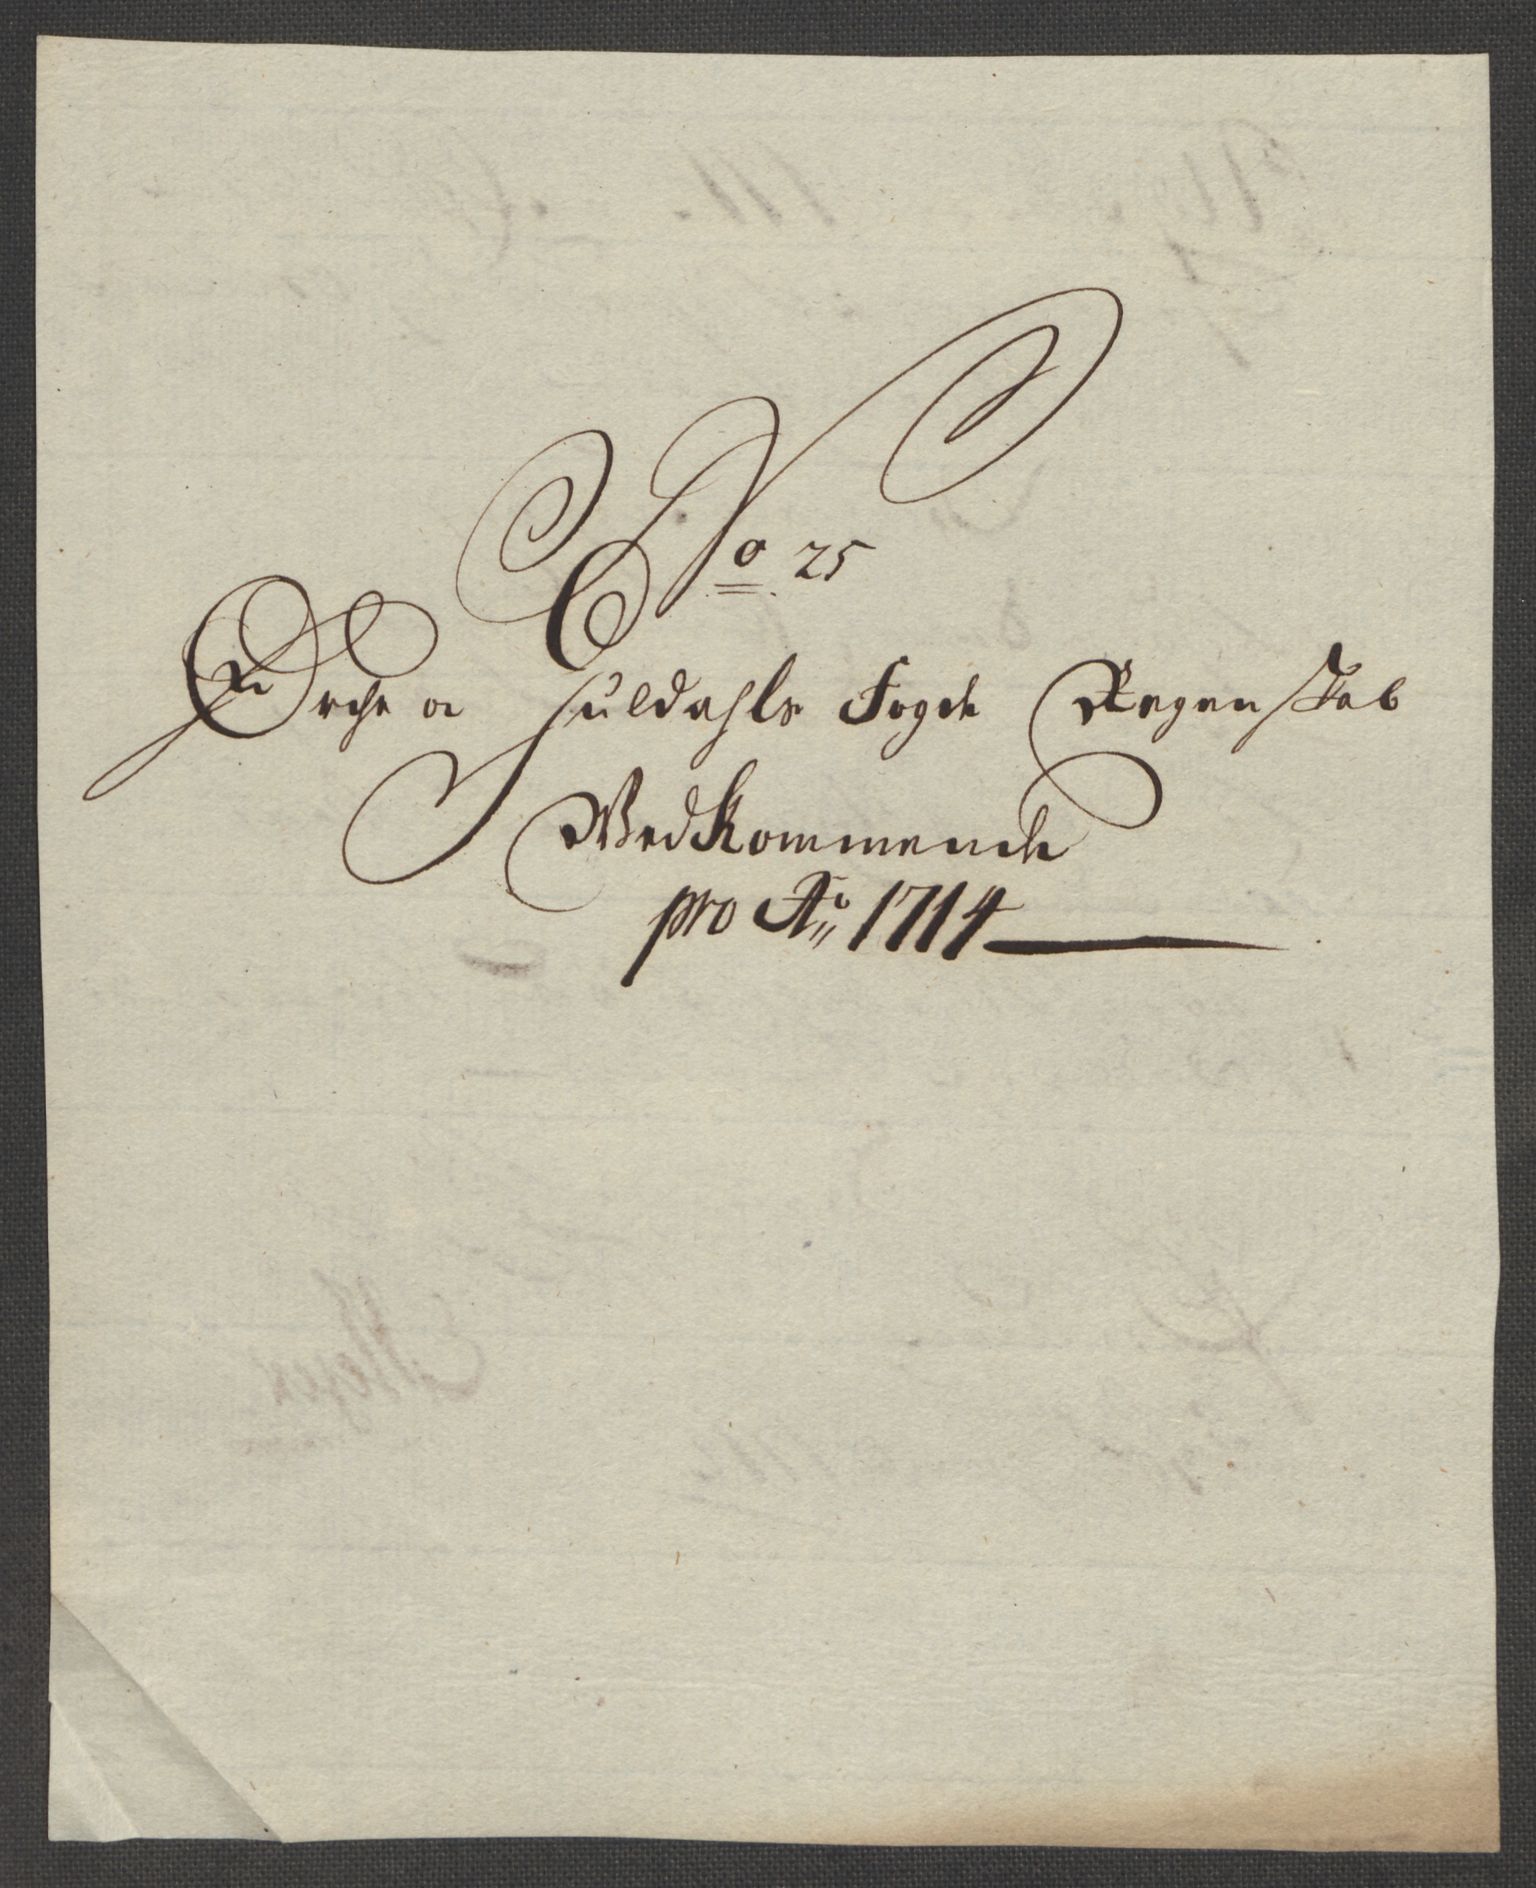 No 25
Orche oc Guldahls Fogde Regenskab
Wedkommende
pro Ao 1714